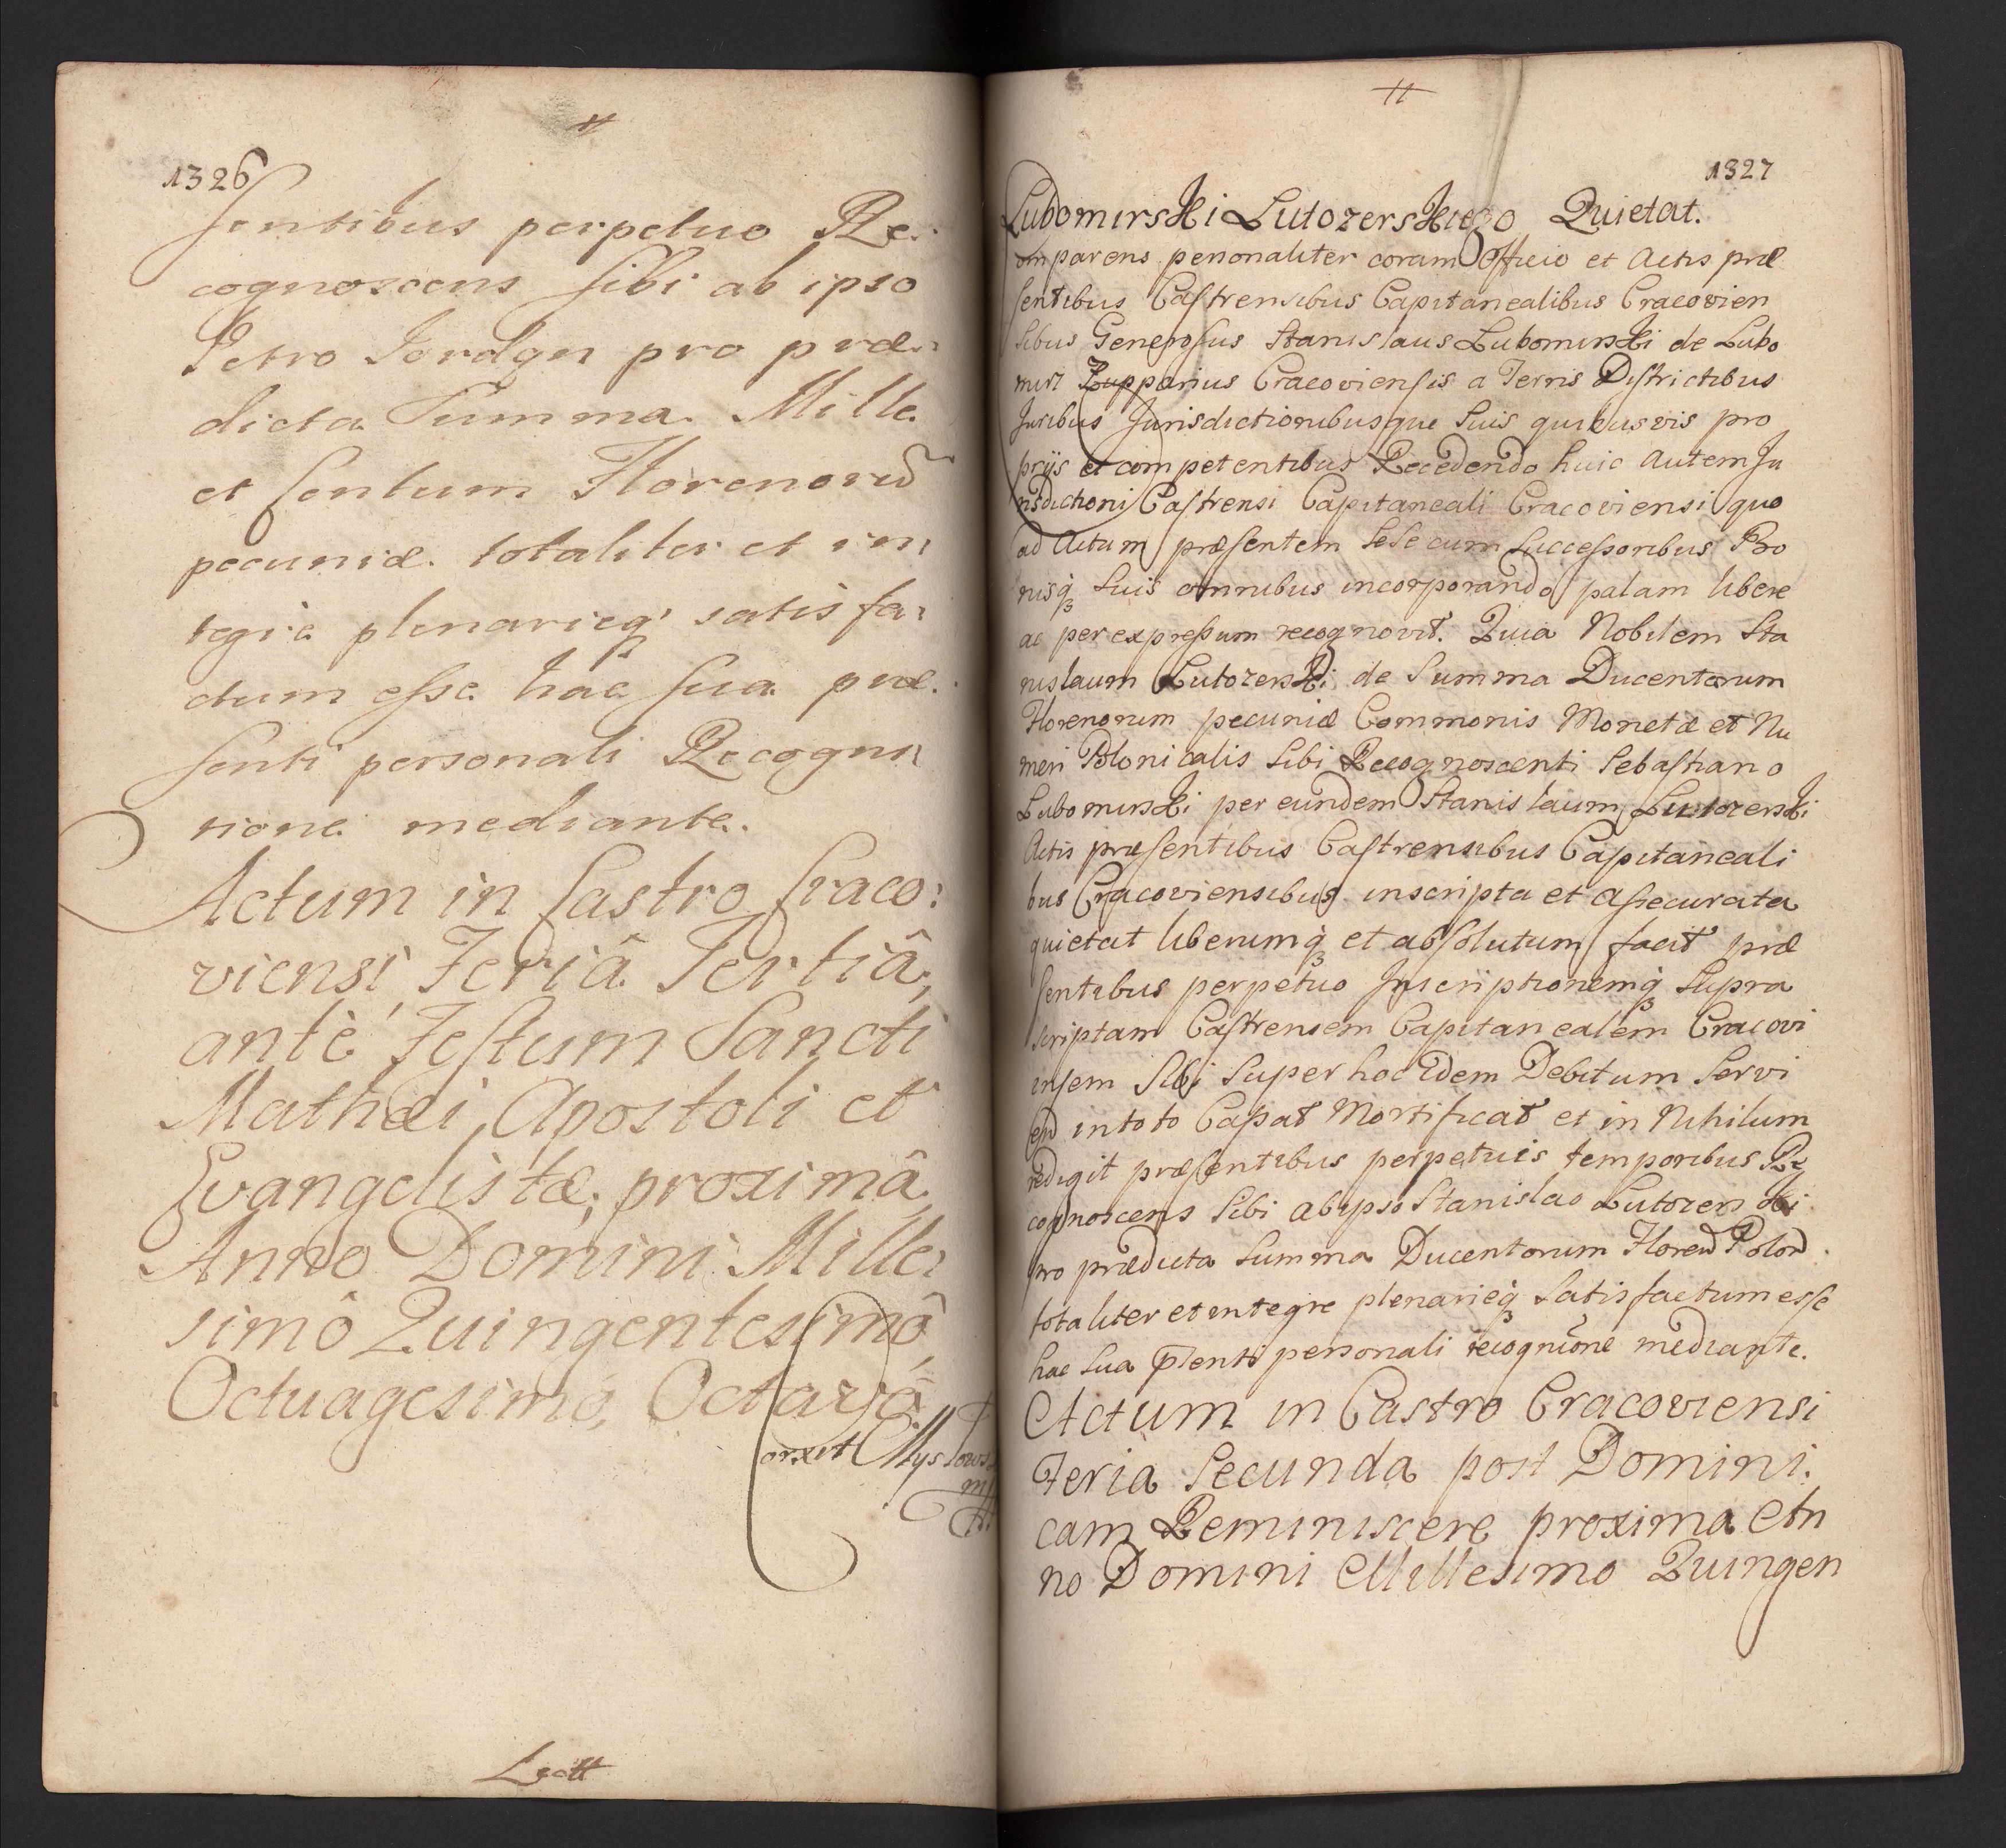 1326
sentibus perpetuo Re:
cognoscens sibi ab ipso
Petro Jordan pro præ:
dicta Summa Mille
et Centum Florenorū
pecuniæ totaliter et in:
tegre plenarieq; satisfa:
ctum esse hac sua præ:
senti personali Recogni:
tione mediante.
Actum in Castro Craco:
viensi Feriâ Tertiâ,
antè Festum Sancti
Mathæi Apostoli et
Evangelistæ, proximâ
Anno Domini Mille:
simô Quingentesimô
Octuagesimo, Octavô
Lectt
1327
Lubomirski Lutozerskiego Quietat.
Comparens personaliter coram Officio et Actis præ
sentibus Castrensibus Capitanealibus Cracovien
sibus Generosus Stanislaus Lubomirski de Lubo
mirz Zupparius Cracoviensis a Terris Districtibus
Juribus Jurisdictionibusque Suis quibusvis pro
prijs et competentibus Recedendo huic autem Ju
risdictioni Castrensi Capitaneali Cracoviensi quo
ad Actum præsentem Sese cum Successoribus Bo
nisq; Suis omnibus incorporando palam libere
ac per expressum recognovit. Quia Nobilem Sta
nislaum Lutozerski de Summa Ducentorum
Florenorum pecuniæ Commonis Monetæ et Nu
meri Polonicalis Sibi Recognoscenti Sebastiano
Lubomirski per eundem Stanislaum Lutozerski
Actis præsentibus Castrensibus Capitaneali
bus Cracoviensibus inscripta et assecurata
quietat liberumq; et absolutum facit præ
sentibus perpetuo Inscriptionemq; Supra
scriptam Castrensem Capitanealem Cracovi
ensem Sibi Super hoc idem Debitum Servi
en in toto Cassat Mortificat et in Nihilum
redigit præsentibus perpetuis temporibus Re
cognoscens Sibi ab ipso Stanislao Lutozerski
pro prædicta Summa Ducentorum Floren Polon
totaliter et integre plenarieq; Satisfactum esse
hac Sua p̄senti personali recognitione mediante.
Actum in Castro Cracoviensi
Feria Secunda post Domini.
cam Reminiscere proxima An
no Domini Millesimo Quingen